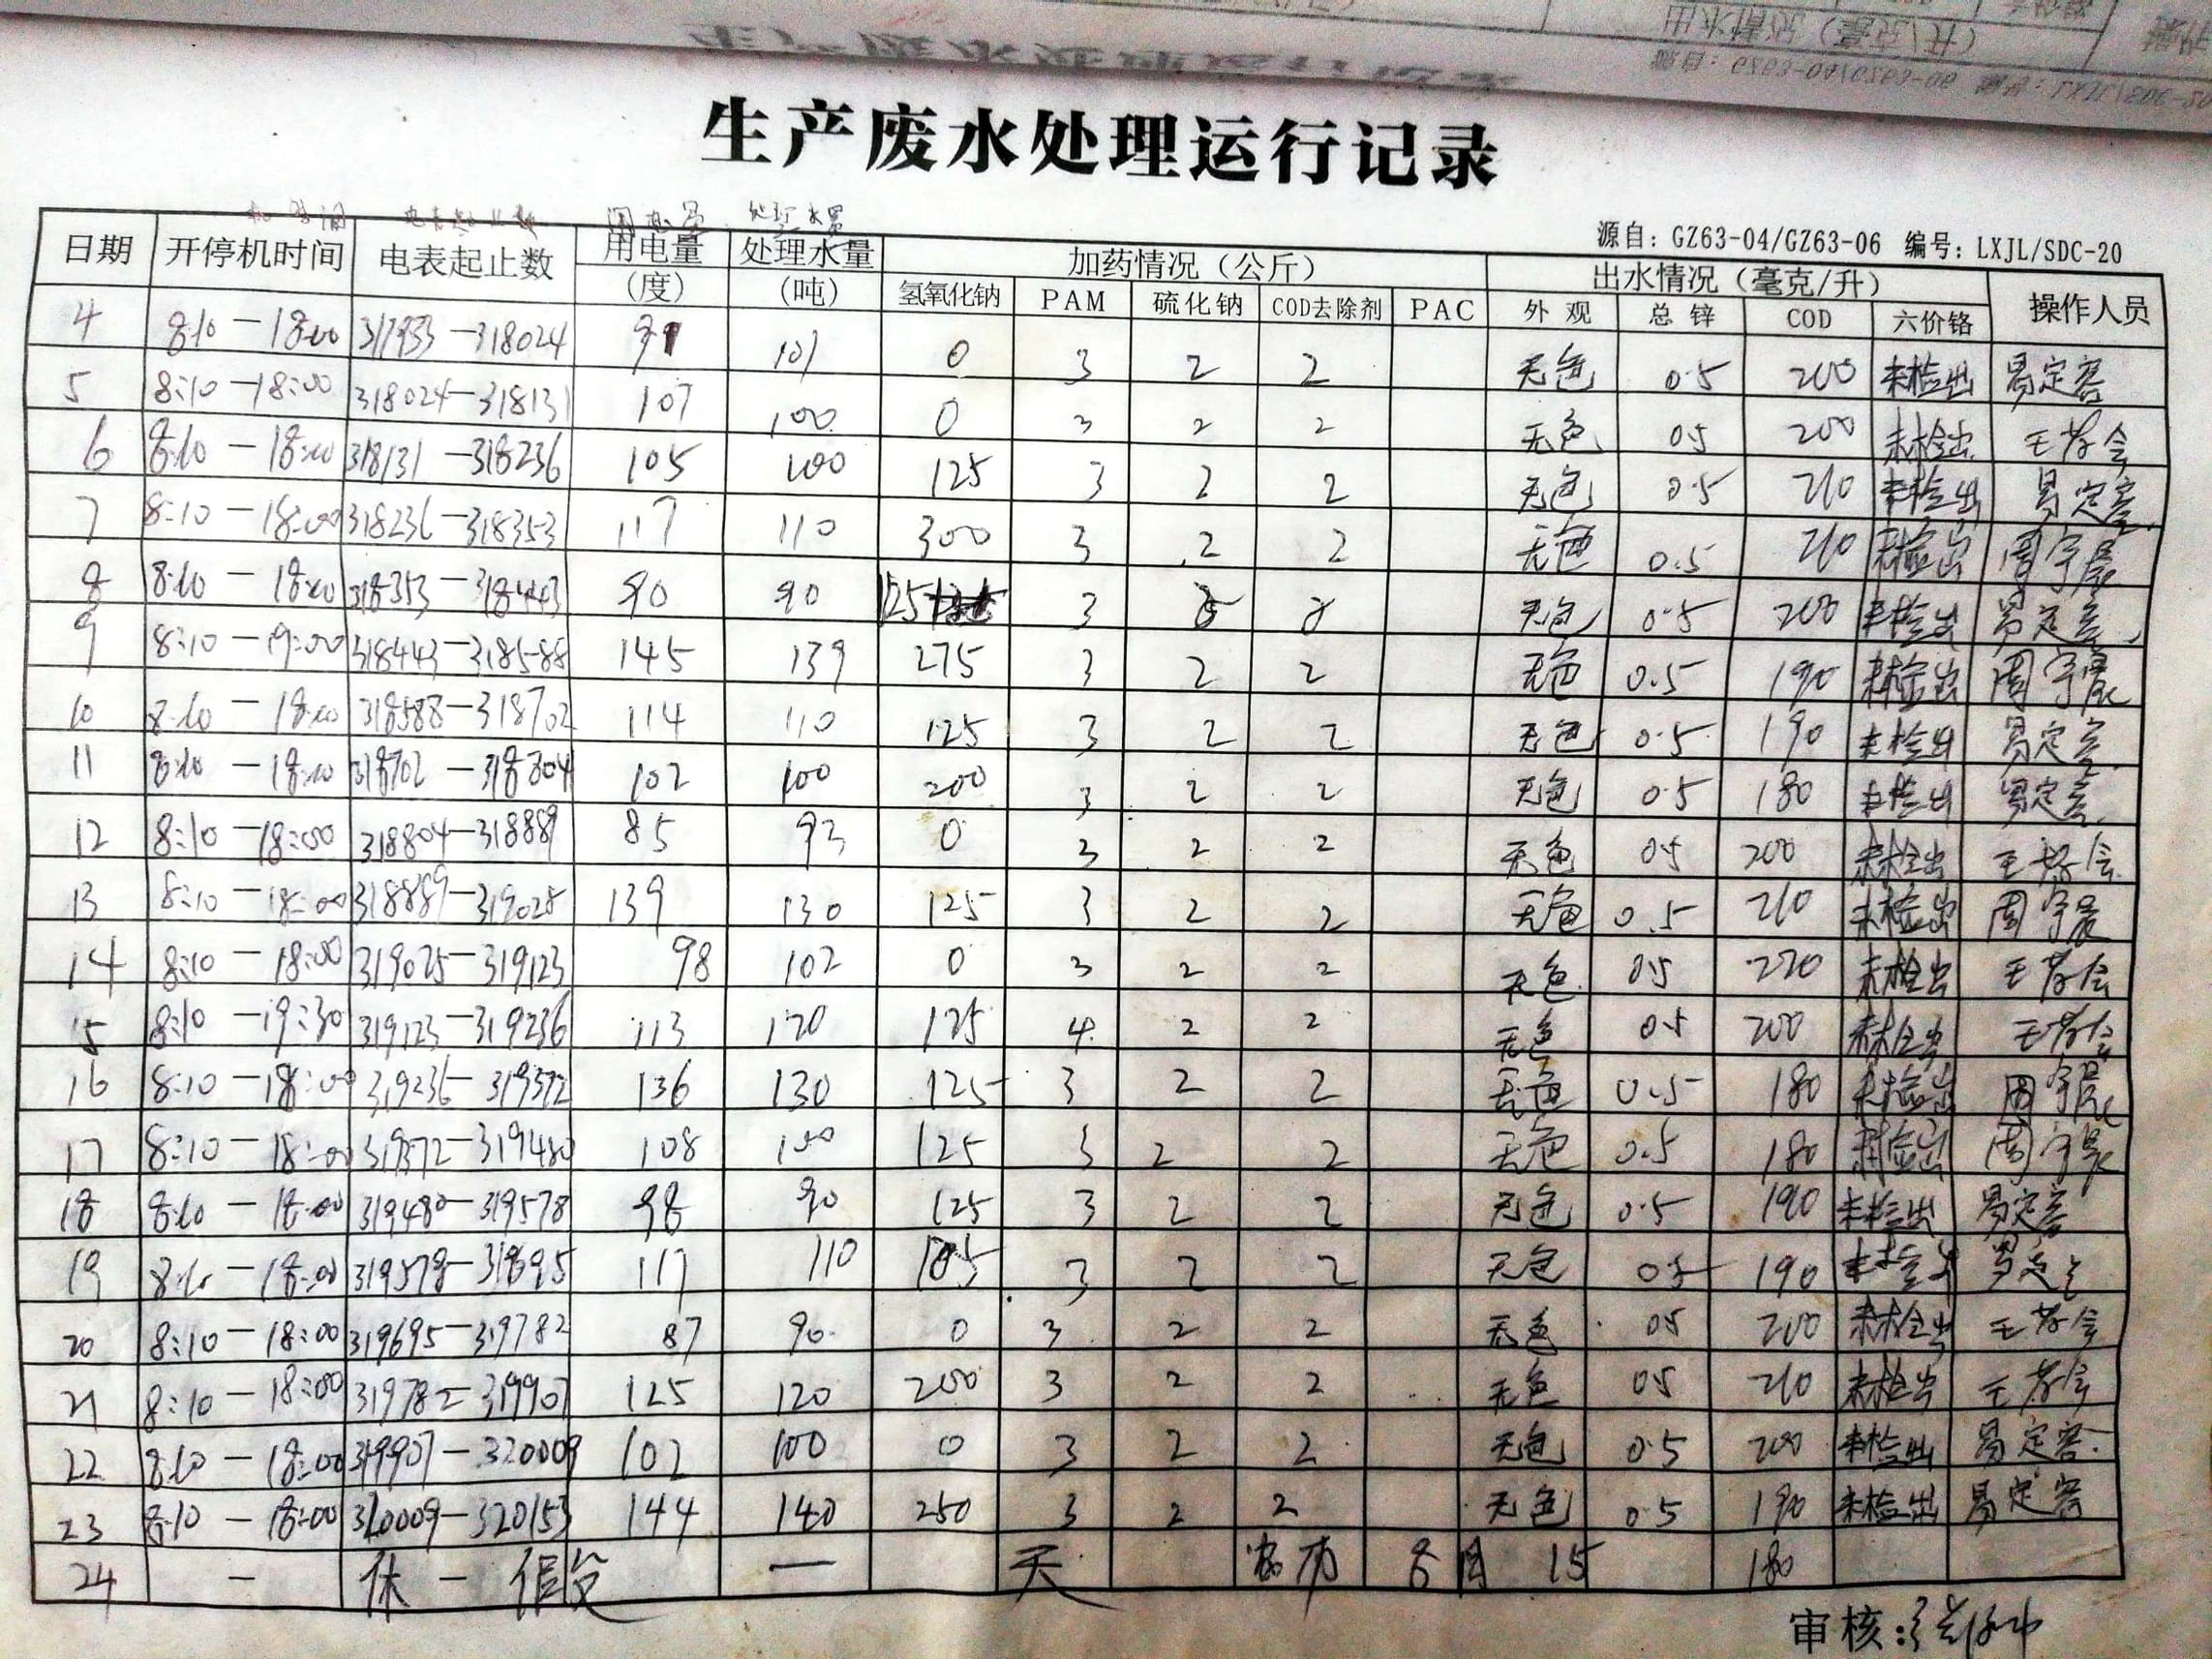 生产废水处理运行记录
源自：GZ63-04/GZ63-06 编号：LXJL/SDC-20
日期 开停机时间 电表起止数 用电量(度) 处理水量(吨) 加药情况（公斤） 出水情况（毫克/升） 操作人员
氢氧化钠 PAM 硫化钠 COD去除剂 PAC 外观 总锌 COD 六价铬
4 8:10-18:00 317933-318024 91 101 0 3 2 2 无色 0.5 200 未检出
5 8:10-18:00 318024-318131 107 100 0 3 2 2 无色 0.5 200 未检出
6 8:10-18:00 318131-318236 105 100 125 3 2 2 无色 0.5 210 未检出
7 8:10-18:00 318236-318353 117 110 300 3 2 2 无色 0.5 210 未检出 周宇晨
8 8:10-18:00 318353-318443 90 90 125 3 无色 0.5 200 未检出
9 8:10-19:00 318443-318588 145 139 275 3 2 2 无色 0.5 190 未检出 周宇晨
10 8:10-18:00 318588-318702 114 110 125 3 2 2 无色 0.5 190 未检出
11 8:10-18:00 318702-318804 102 100 200 3 2 2 无色 0.5 180 未检出
12 8:10-18:00 318804-318889 85 93 0 3 2 2 无色 0.5 200 未检出
13 8:10-18:00 318889-319025 139 130 125 3 2 2 无色 0.5 210 未检出 周宇晨
14 8:10-18:00 319025-319123 98 102 0 3 2 2 无色 0.5 220 未检出
15 8:10-19:30 319123-319236 113 120 125 4 2 2 无色 0.5 200 未检出
16 8:10-18:00 319236-319372 136 130 125 3 2 2 无色 0.5 180 未检出 周宇晨
17 8:10-18:00 319372-319480 108 100 125 3 2 2 无色 0.5 180 未检出 周宇晨
18 8:10-18:00 319480-319578 98 90 125 3 2 2 无色 0.5 190 未检出
19 8:10-18:00 319578-319695 117 110 3 2 2 无色 0.5 190 未检出
20 8:10-18:00 319695-319782 87 90 0 3 2 2 无色 0.5 200 未检出
21 8:10-18:00 319782-319907 125 120 200 3 2 2 无色 0.5 210 未检出
22 8:10-18:00 319907-320009 102 100 0 3 2 2 无色 0.5 200 未检出
23 8:10-18:00 320009-320153 144 140 250 3 2 2 无色 0.5 190 未检出
24 - 休 - 假 一 天 15 180
审核：